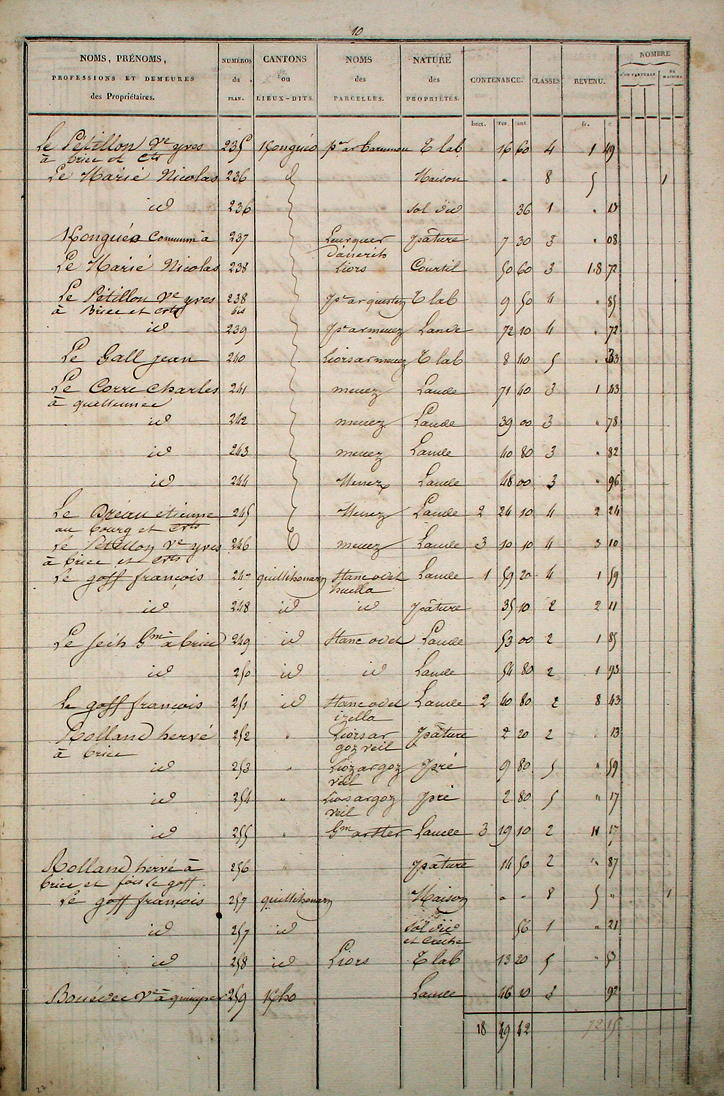 10
NOMS, PRÉNOMS, PROFESSIONS ET DEMEURES des Propriétaires. NUMÉROS du PLAN. CANTONS ou LIEUX-DITS. NOMS des PARCELLES. NATURE des PROPRIÉTÉS. CONTENANCE. CLASSES. REVENU. NOMBRE
Le Pétillon Ve yves 235 Kongués T lab. 16 60 4 1 49
à briec et crts
Le Marié Nicolas 236 d Maison " 8 5 1
id 236 sol du 36 1 " 13
Kongués Commun à 237 Leurguer pâture 7 30 3 " 08
Le Marié Nicolas 238 liors Courtil 50 60 3 18 72
Le Pétillon Ve yves 238 T lab 9 50 4 " 85
à Briec et crts bis
id 239 pt ar menez Lande 72 10 4 " 72
Le Gall jean 240 liors ar menez T lab 8 40 5 " 33
Le Corre Charles 241 menez Lande 71 40 3 1 43
id 242 menez Lande 39 00 3 " 78
id 243 menez Lande 40 80 3 " 82
id 244 Menez Lande 48 00 3 " 96
Le Bréau etienne 245 Menez Lande 2 24 10 4 2 24
au bourg et crts
Le Pétillon Ve yves 246 menez Lande 3 10 10 4 3 10
à briec et crts
Le goff françois 247 quillihouarn Stanc odet Lande 1 59 20 4 1 59
huella
id 248 id id pâture 35 10 2 2 11
Le feih Gm à briec 249 id Stanc odet Lande 53 00 2 1 85
id 250 id id Lande 54 80 2 1 93
Le goff françois 251 id Stanc odet Lande 2 40 80 2 8 43
izella
Rolland hervé 252 " Liors ar pâture 2 20 2 " 13
à briec goz veil
id 253 " Liors ar goz pré 9 80 5 " 59
veil
id 254 " Liors ar goz pré 2 80 5 " 17
veil
id 255 " Lande 3 19 10 2 11 17
Rolland hervé à 256 pâture 14 50 2 " 87
briec et fois le goff
Le goff françois 257 quillihouarn Maison " " 8 5 " 1
id 257 id sol du 56 1 " 21
et creche
id 258 id Liors T lab 13 20 5 " 53
Bouëdec Ve à quimper 259 Kho Lande 46 10 3 " 92
18 49 42 72 15